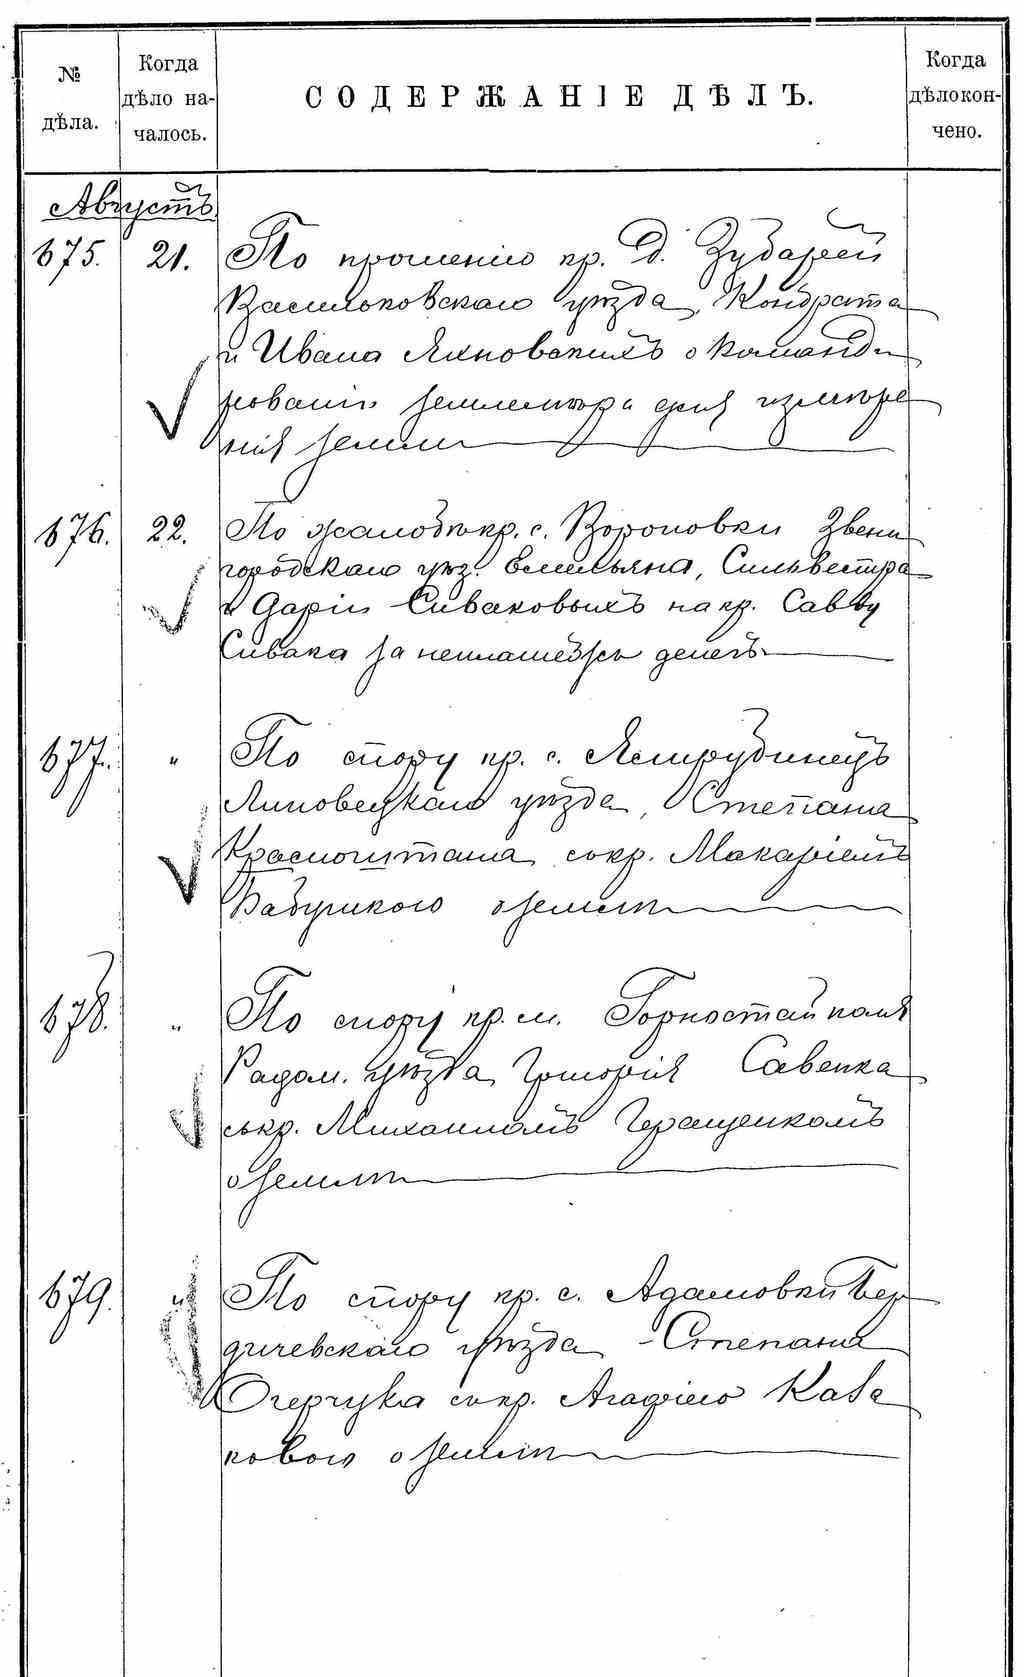 № дѣла.
Когда дѣло на-
чалось.
СОДЕРЖАНІЕ ДѢЛЪ.
Когда дѣло кон-
чено.
Августъ
675. 21. По прошенію кр. д. Зубарей
Васильковскаго уѣзда, Кондрата
и Ивана Яхновскихъ о команди
рованіи землемѣра для измѣре
нія земли
676. 22. По жалобѣ кр. с. Вороновки Звени
городскаго уѣз. Емельяна, Сильвестра
и Даріи Сиваковыхъ на кр. Савву
Сивака за неплатежъ денегъ
677. " По спору кр. с. Ясирубинецъ
Липовецкаго уѣзда, Степана
Красноштана съ кр. Макаріемъ
Бабушкою о землѣ
678. " По спору кр. м. Горностайполя
Радом. уѣзда Григорія Савенка
съ кр. Михаиломъ Геращенкомъ
о землѣ
679. " По спору кр. с. Адамовки Бер
дичевскаго уѣзда Степана
Огерчука съ кр. Агафіею Каза
ковою о землѣ